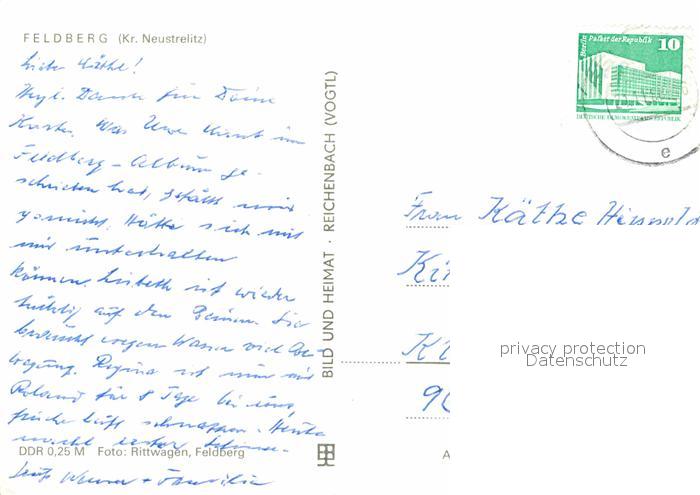 FELDBERG (Kr. Neustrelitz)
Liebe Käthe!
Hzl. Dank für Deine
Karte. Was Uwe Kant im
Feldberg-Album ge-
schrieben hat, gefällt mir
gar nicht. Hätte sich mit
mir unterhalten
können. Lisbeth ist wieder
tüchtig auf den Beinen. Sie
braucht wegen Wasser viel Be-
wegung. Regina ist nun mit
Roland für 8 Tage bei uns,
frische Luft schnappen. Heute
macht
DDR 0,25 M Foto: Rittwagen, Feldberg
Werner + Familie
BILD UND HEIMAT · REICHENBACH (VOGTL)
Berlin Palast der Republik 10
DEUTSCHE DEMOKRATISCHE REPUBLIK
e
Frau Käthe
Ki
K
90
A
privacy protection
Datenschutz